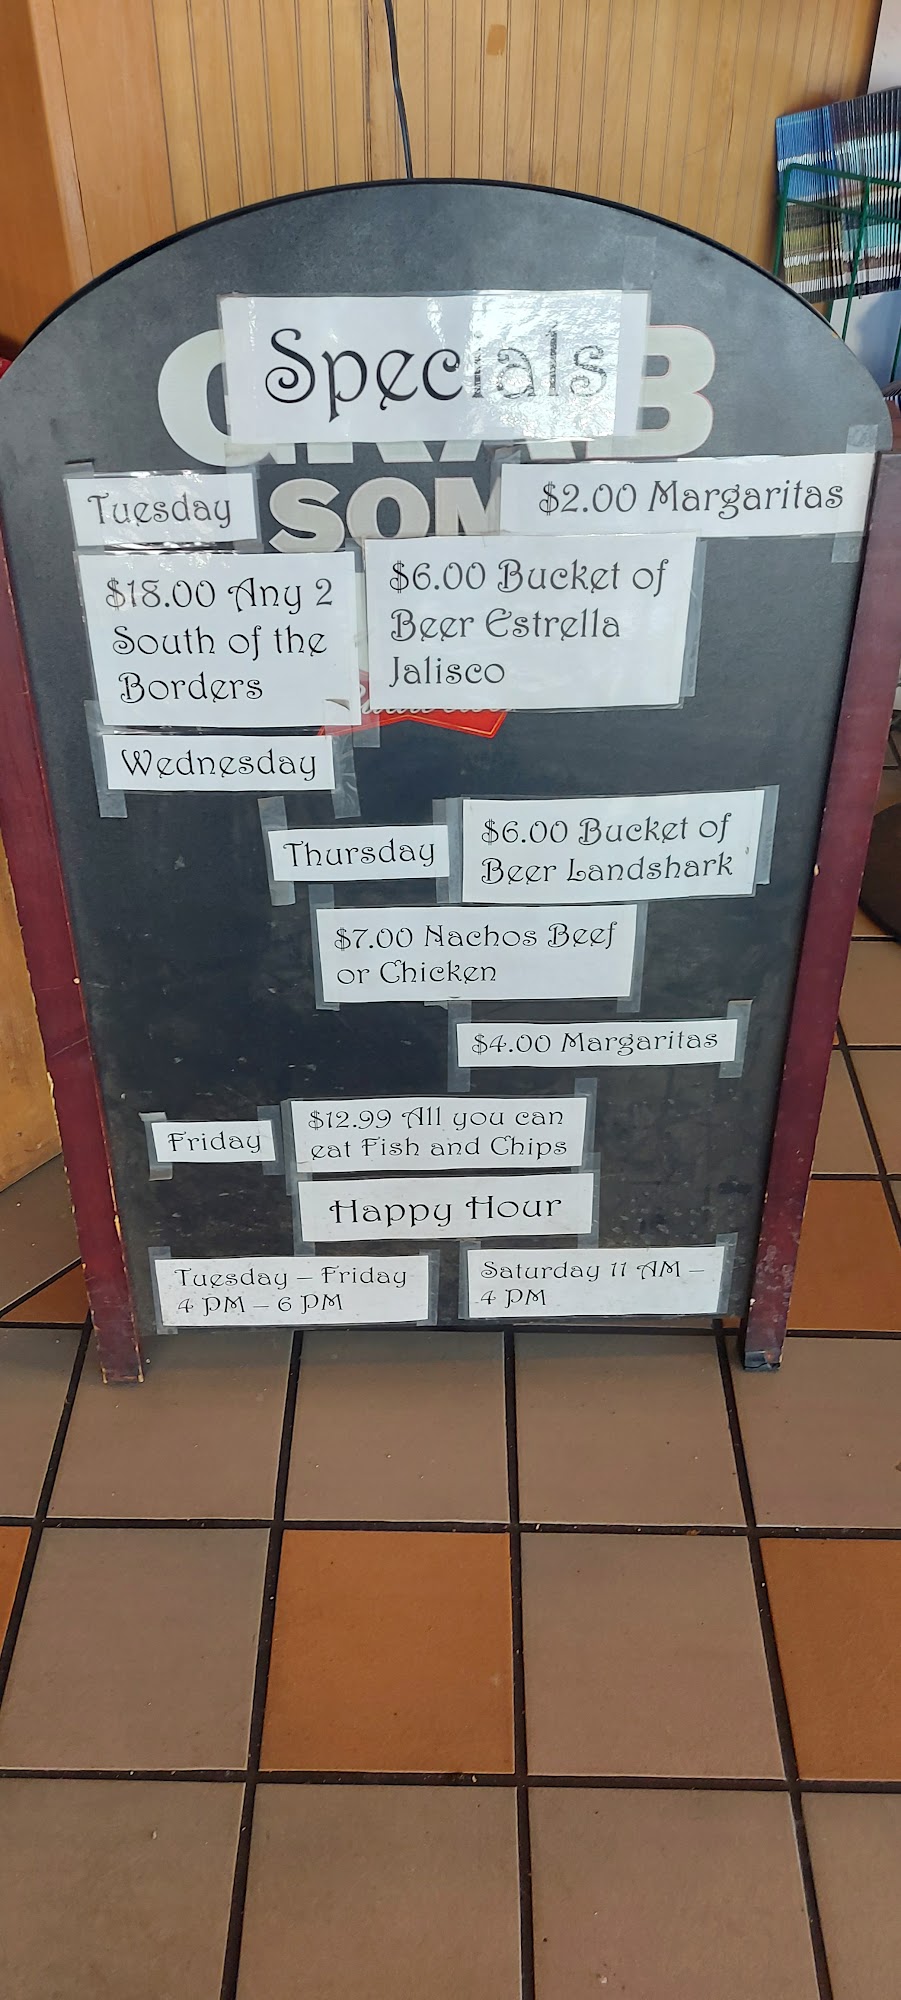 Specials
Tuesday
$2.00 Margaritas
$18.00 Any 2
South of the
Borders
$6.00 Bucket of
Beer Estrella
Jalisco
Wednesday
Thursday
$6.00 Bucket of
Beer Landshark
$7.00 Nachos Beef
or Chicken
$4.00 Margaritas
Friday
$12.99 All you can
eat Fish and Chips
Happy Hour
Tuesday – Friday
4 PM – 6 PM
Saturday 11 AM –
4 PM